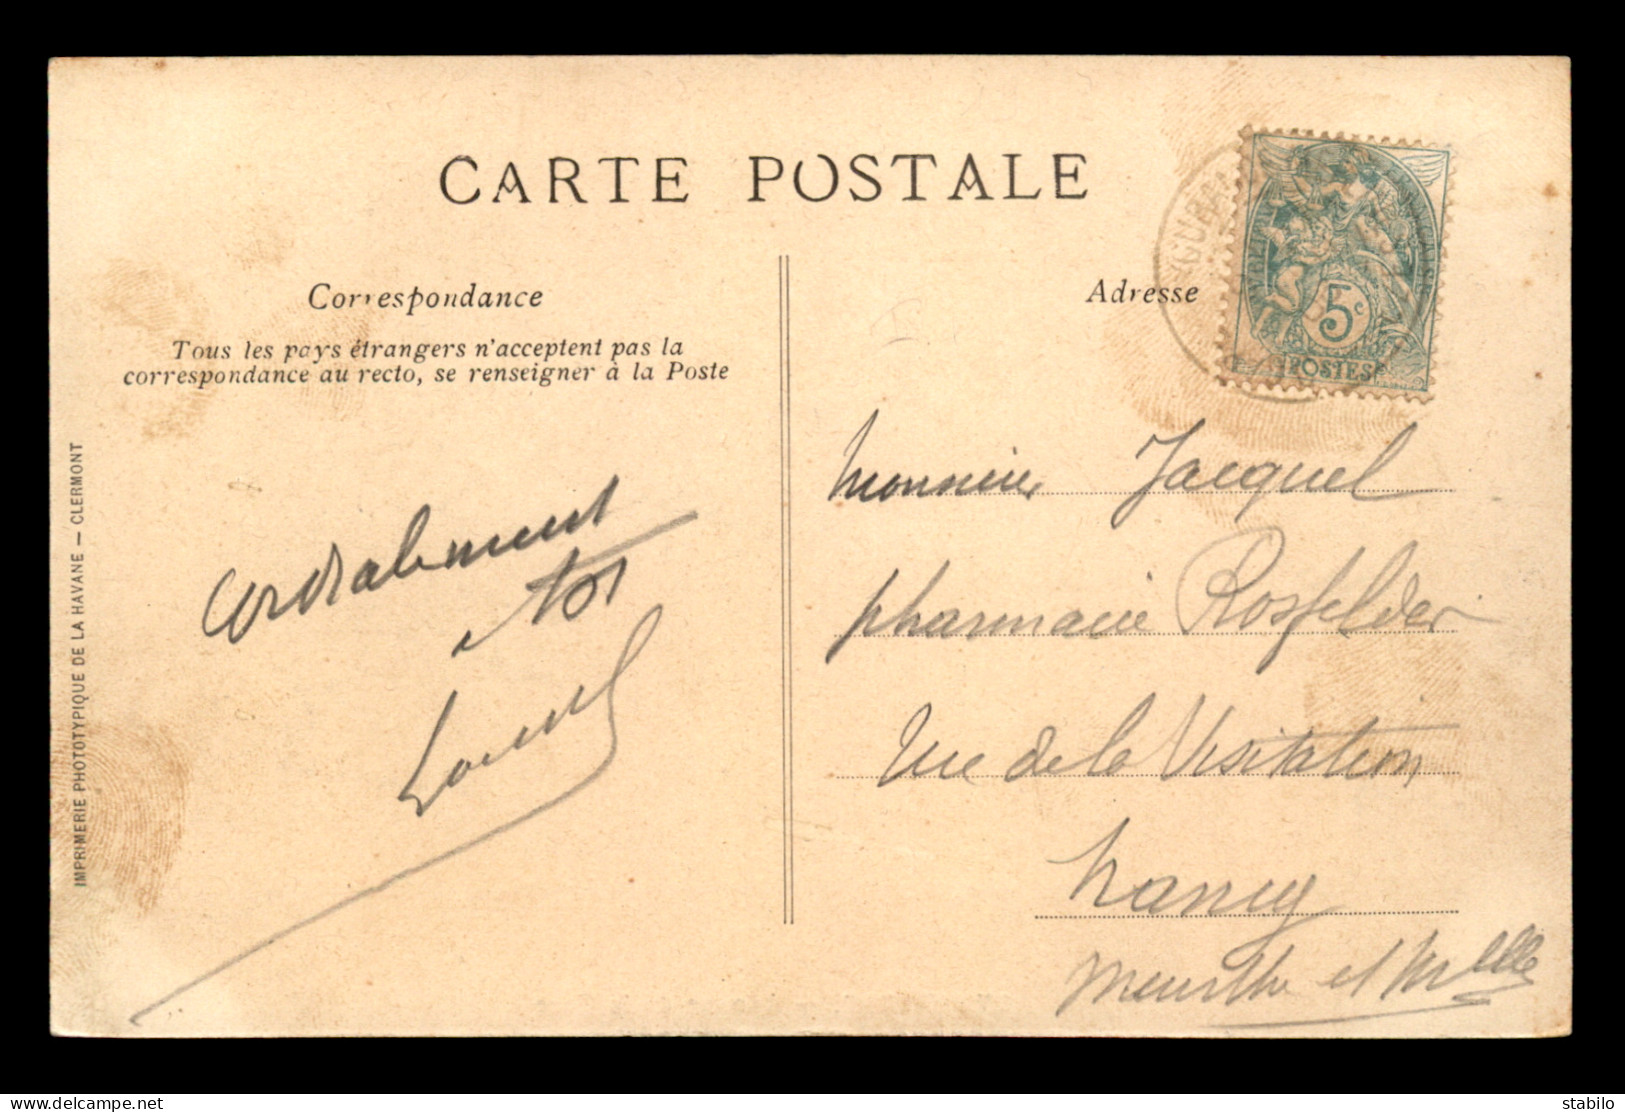 CARTE POSTALE
Correspondance
Tous les pays étrangers n'acceptent pas la
correspondance au recto, se renseigner à la Poste
IMPRIMERIE PHOTOTYPIQUE DE LA HAVANE — CLERMONT
Cordialement
à toi
Adresse
5c
POSTES
Monsieur Jacquel
pharmacie Rosfelder
Rue de la Visitation
Nancy
Meurthe et Mlle
delcampe.net
stabilo